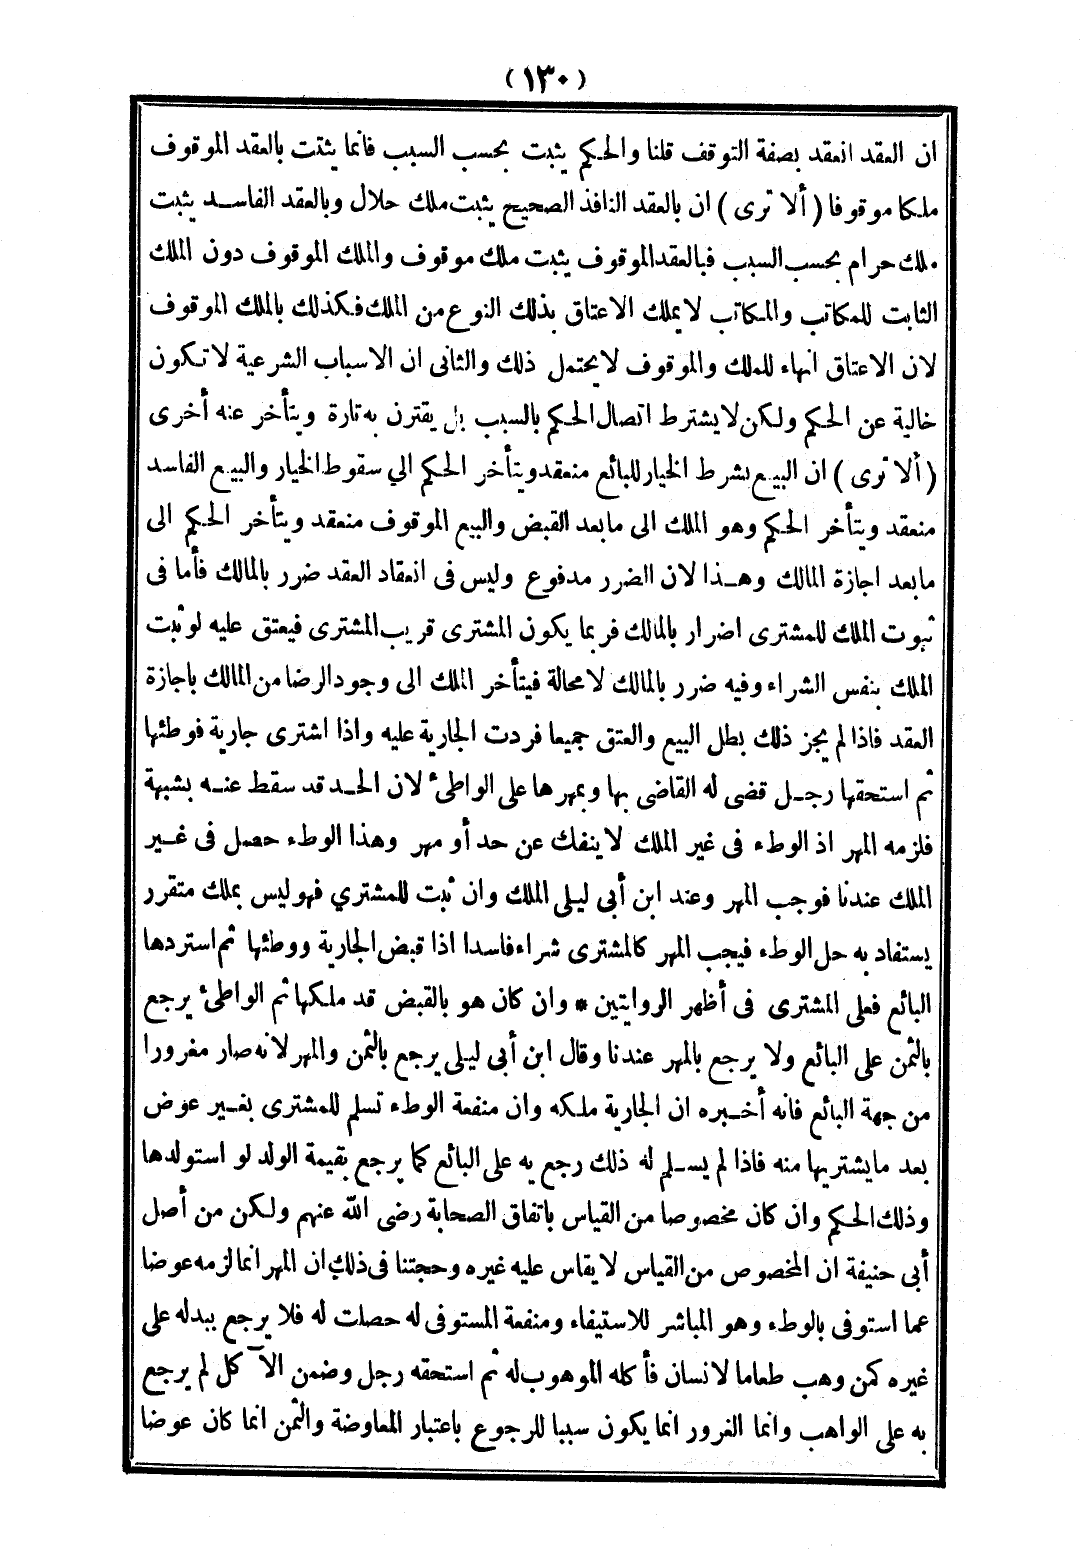 (١٣٠)
ان العقد انعقد بصفة التوقف قلنا والحكم يثبت بحسب السبب فانما يثبت بالعقد الموقوف
ملكا موقوفا (ألا ترى) ان بالعقد النافذ الصحيح يثبت ملك حلال وبالعقد الفاسد يثبت
ملك حرام بحسب السبب فبالعقد الموقوف يثبت ملك موقوف والملك الموقوف دون الملك
الثابت للمكاتب والمكاتب لا يملك الاعتاق بذلك النوع من الملك فكذلك بالملك الموقوف
لان الاعتاق انهاء للملك والموقوف لا يحتمل ذلك والثانى ان الاسباب الشرعية لا تكون
خالية عن الحكم ولكن لا يشترط اتصال الحكم بالسبب بل يقترن به تارة ويتأخر عنه أخرى
(ألا ترى) ان البيع بشرط الخيار للبائع منعقد ويتأخر الحكم الي سقوط الخيار والبيع الفاسد
منعقد ويتأخر الحكم وهو الملك الى ما بعد القبض والبيع الموقوف منعقد ويتأخر الحكم الى
ما بعد اجازة المالك وهذا لان الضرر مدفوع وليس فى انعقاد العقد ضرر بالمالك فأما فى
ثبوت الملك للمشترى اضرار بالمالك فربما يكون المشترى قريب المشترى فيعتق عليه لو ثبت
الملك بنفس الشراء وفيه ضرر بالمالك لا محالة فيتأخر الملك الى وجود الرضا من المالك باجازة
العقد فاذا لم يجز ذلك بطل البيع والعتق جميعا فردت الجارية عليه واذا اشترى جارية فوطئها
ثم استحقها رجل قضى له القاضى بها وبمهرها على الواطئ لان الحد قد سقط عنه بشبهة
فلزمه المهر اذ الوطء فى غير الملك لا ينفك عن حد أو مهر وهذا الوطء حصل فى غير
الملك عندنا فوجب المهر وعند ابن أبى ليلى الملك وان ثبت للمشتري فهو ليس بملك متقرر
يستفاد به حل الوطء فيجب المهر كالمشترى شراء فاسدا اذا قبض الجارية ووطئها ثم استردها
البائع فعلى المشترى فى أظهر الروايتين * وان كان هو بالقبض قد ملكها ثم الواطئ يرجع
بالثمن على البائع ولا يرجع بالمهر عندنا وقال ابن أبى ليلى يرجع بالثمن والمهر لانه صار مغرورا
من جهة البائع فانه أخبره ان الجارية ملكه وان منفعة الوطء تسلم للمشترى بغير عوض
بعد ما يشتريها منه فاذا لم يسلم له ذلك رجع به على البائع كما يرجع بقيمة الولد لو استولدها
وذلك الحكم وان كان مخصوصا من القياس باتفاق الصحابة رضى الله عنهم ولكن من أصل
أبى حنيفة ان المخصوص من القياس لا يقاس عليه غيره وحجتنا فى ذلك ان المهر انما لزمه عوضا
عما استوفى بالوطء وهو المباشر للاستيفاء ومنفعة المستوفى له حصلت له فلا يرجع ببدله على
غيره كمن وهب طعاما لانسان فأكله الموهوب له ثم استحقه رجل وضمن الآكل لم يرجع
به على الواهب وانما الغرور انما يكون سببا للرجوع باعتبار المعاوضة والثمن انما كان عوضا